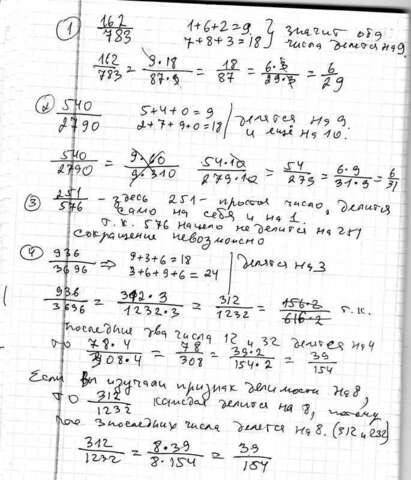 ① 162/783 1+6+2=9 7+8+3=18 } значит оба числа делятся на 9.
162/783 = 9·18/87·9 = 18/87 = 6·3/29·3 = 6/29
② 540/2790 5+4+0=9 2+7+9+0=18 | делятся на 9 и ещё на 10.
540/2790 = 54·10/279·10 = 54/279 = 6·9/31·9 = 6/31
③ 251/576 - здесь 251 - простое число, делится
само на себя и на 1.
т.к. 576 нацело не делится на 251
сокращение невозможно
④ 936/3696 ⇒ 9+3+6=18 3+6+9+6=24 | делятся на 3
936/3696 = 312·3/1232·3 = 312/1232 = 156·2/616·2 т.к.
последние два числа 12 и 32 делятся на 4
то 78·4/308·4 = 78/308 = 39·2/154·2 = 39/154
Если вы изучали признак делимости на 8,
то 312/1232 каждая делится на 8,
3 последних числа делятся на 8. (312 и 232)
312/1232 = 8·39/8·154 = 39/154